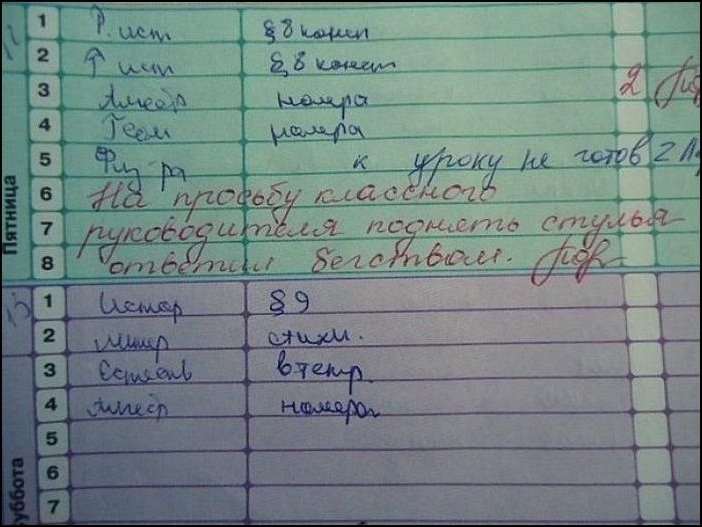 Пятница
1 Р. ист § 8 консп
2 Р ист § 8 консп
3 Алгебр номера 2
4 Геом номера
5 Физ-ра к уроку не готов 2
6 На просьбу классного
7 руководителя поднять стулья
8 ответил бегством.
уббота
1 Истор § 9
2 Литер стихи.
3 Естеств в тетр.
4 Алгебр номера
5
6
7